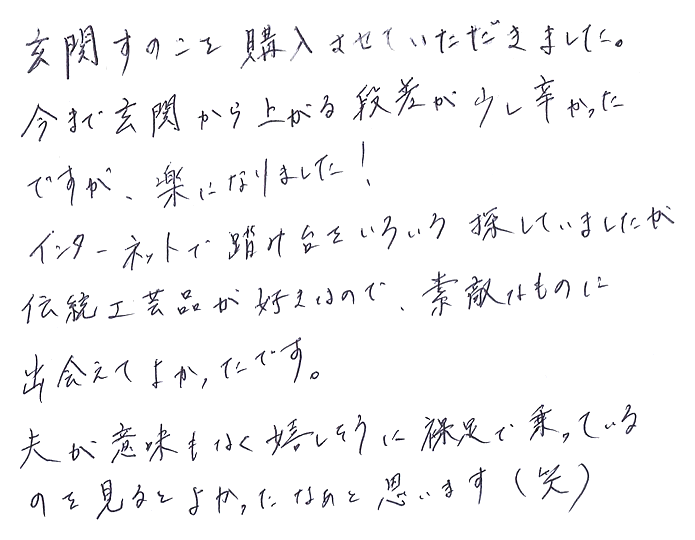 玄関すのこを購入させていただきました。
今まで玄関から上がる段差が少し辛かった
ですが、楽になりました!
インターネットで踏み台をいろいろ探していましたが
伝統工芸品が好きなので、素敵なものに
出会えてよかったです。
夫が意味もなく嬉しそうに裸足で乗っている
のを見るとよかったなぁと思います(笑)